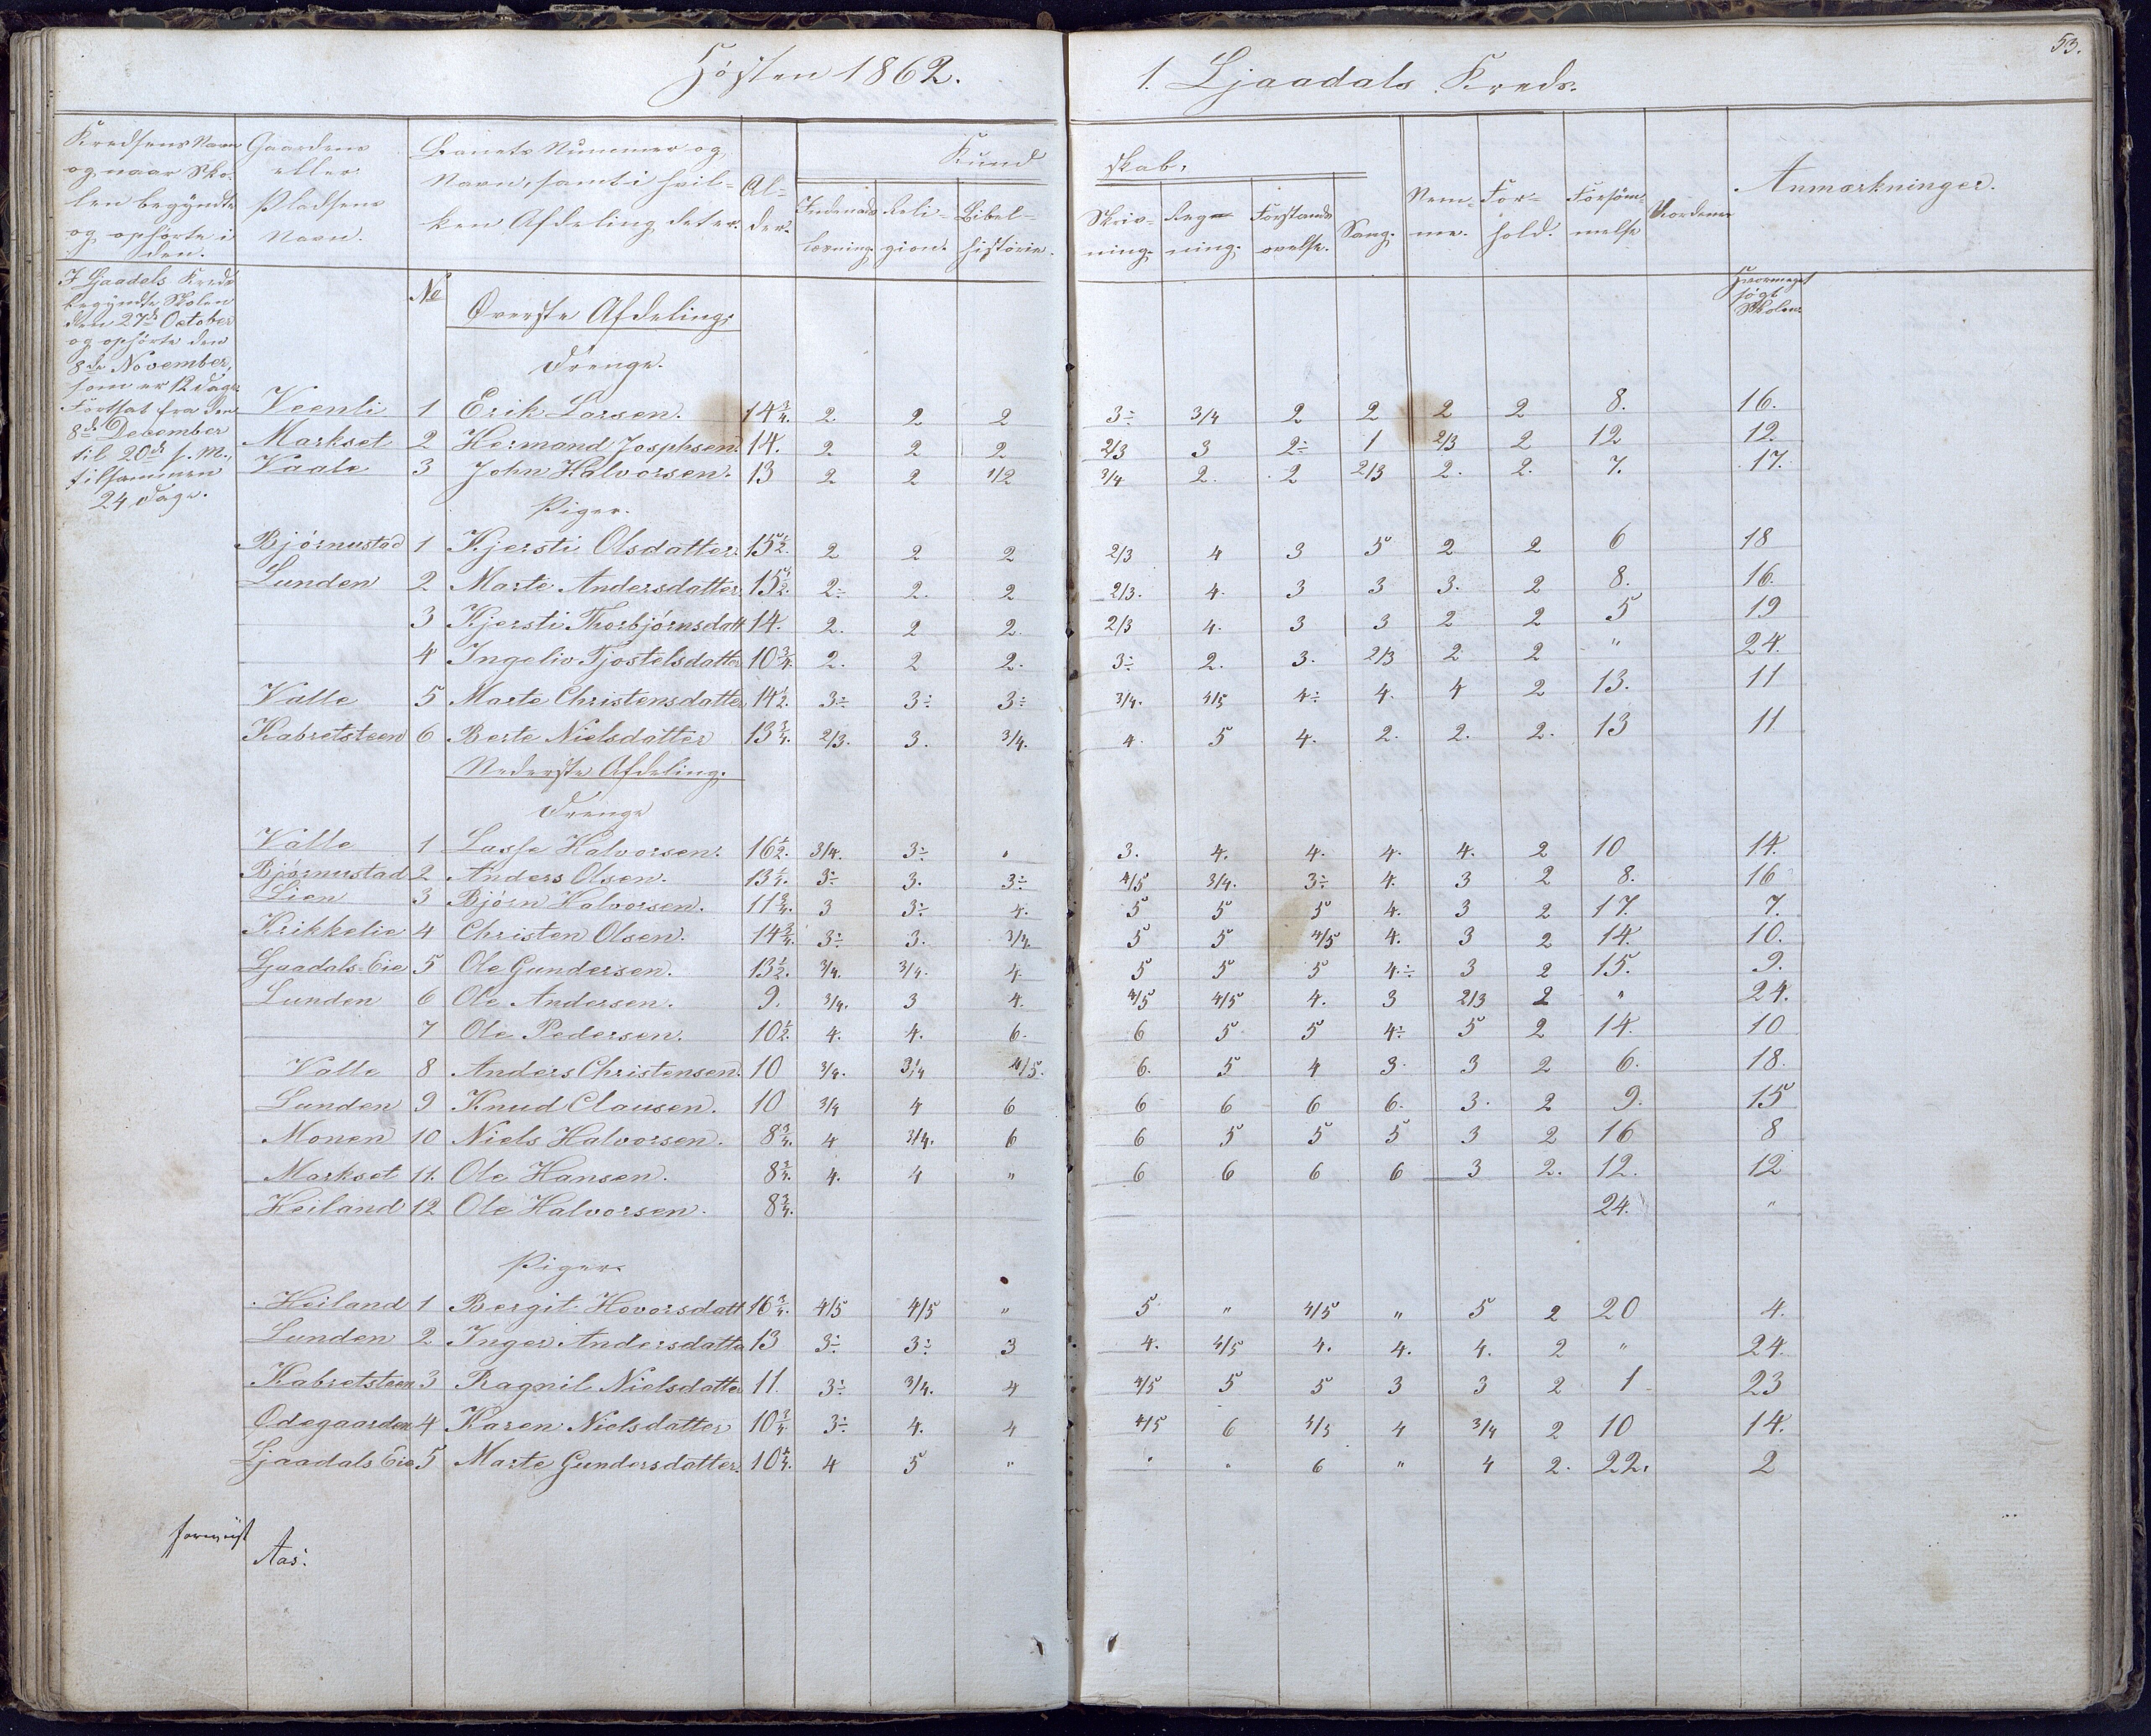 Høsten 1862.
1. Ljaadals Kreds.
53.
Kredsens Navn og naar Skolen begyndte og ophørte i den.
Gaardens eller Pladsens Navn.
Barnets Nummer og Navn, samt i hvilken Afdeling det er.
Alder.
Kundskab.
Indenadslæsning.
Religion.
Bibelhistorie.
Skrivning.
Regning.
Forstandsøvelse.
Sang.
Nemme.
Forhold.
Forsømmelse
Anmærkninger.
Hvormeget søgt Skolen
I Ljaadals Kreds
begyndte Skolen
den 27de October
og ophørte den
8de November,
som er 12 Dage
Fortsat fra den
8de December
til 20de s. M.,
tilsammen
24 Dage.
No
Øverste Afdeling.
Drenge.
Veenli 1 Erik Larsen. 14 3/4. 2. 2 2 3÷ 3/4 2 2 2 2 8. 16.
Markset 2 Hermand Josphsen. 14. 2 2 2 2/3 3 2÷ 1 2/3 2 12 12.
Vaale 3 John Halvorsen. 13 2 2 1/2 3/4 2. 2 2/3 2. 2. 7. 17.
Piger.
Bjørnustad 1 Kjersti Olsdatter. 15 1/2. 2 2 2 2/3 4 3 5 2 2 6 18
Lunden 2 Marte Andersdatter 15 1/2. 2÷ 2. 2 2/3. 4. 3 3 3. 2 8. 16.
3 Kjersti Thorbjørnsdatt 14. 2. 2 2. 2/3 4. 3 3 2 2 5 19
4 Ingeliv Tjostelsdatter 10 3/4. 2. 2 2. 3÷ 2. 3. 2/3 2 2 " 24.
Valle 5 Marte Christensdatter 14 1/2. 3÷ 3÷ 3÷ 3/4. 4/5 4÷ 4. 4 2 13. 11
Kabretsteen 6 Berte Nielsdatter 13 3/4. 2/3. 3. 3/4. 4. 5 4. 2. 2. 2. 13 11
Nederste Afdeling.
Drenge
Valle 1 Lasse Halvorsen. 16 1/2. 3/4. 3÷ " 3. 4. 4. 4. 4. 2 10 14.
Bjørnustad 2 Anders Olsen. 13 1/4. 3÷ 3. 3÷ 4/5 3/4. 3÷ 4. 3 2 8. 16
Lien 3 Bjørn Halvorsen. 11 3/4. 3 3÷ 4. 5 5 5 4. 3 2 17. 7.
Krikkelie 4 Christen Olsen. 14 3/4. 3÷ 3. 3/4. 5 5 4/5 4. 3 2 14. 10.
Ljaadals Eie 5 Ole Gundersen. 13 1/2. 3/4. 3/4. 4. 5 5 5 4÷ 3 2 15. 9.
Lunden 6 Ole Andersen. 9. 3/4. 3 4. 4/5 4/5 4. 3 2/3 2 " 24.
7 Ole Pedersen. 10 1/2. 4. 4. 6. 6 5 5 4÷ 5 2 14. 10
Valle 8 Anders Christensen. 10 3/4. 3/4 4/5. 6. 5 4 3. 3 2 6. 18.
Lunden 9 Knud Clausen. 10 3/4 4 6 6 6 6 6. 3. 2 9. 15
Monen 10 Niels Halvorsen. 8 3/4. 4 3/4. 6 6 5 5 5 3 2 16 8
Markset 11. Ole Hansen. 8 3/4. 4. 4 " 6 6 6 6 3 2. 12. 12
Heiland 12 Ole Halvorsen. 8 3/4. 24. "
Piger.
Heiland 1 Bergit Hovorsdatt 16 3/4. 4/5 4/5 " 5 " 4/5 " 5 2 20 4.
Lunden 2 Inger Andersdatte 13 3÷ 3÷ 3 4. 4/5 4. 4. 4. 2 " 24.
Kabretsteen 3 Ragnil Nielsdatter 11. 3÷ 3/4. 4 4/5 5 5 3 3 2 1 23
Ødegaarden 4 Karen Nielsdatter 10 3/4. 3÷ 4. 4 4/5 6 4/5 4 3/4 2 10 14.
Ljaadals Eie 5 Marte Gundersdatter. 10 1/4. 4 5 " " " 6 " 4 2. 22. 2
Aas.